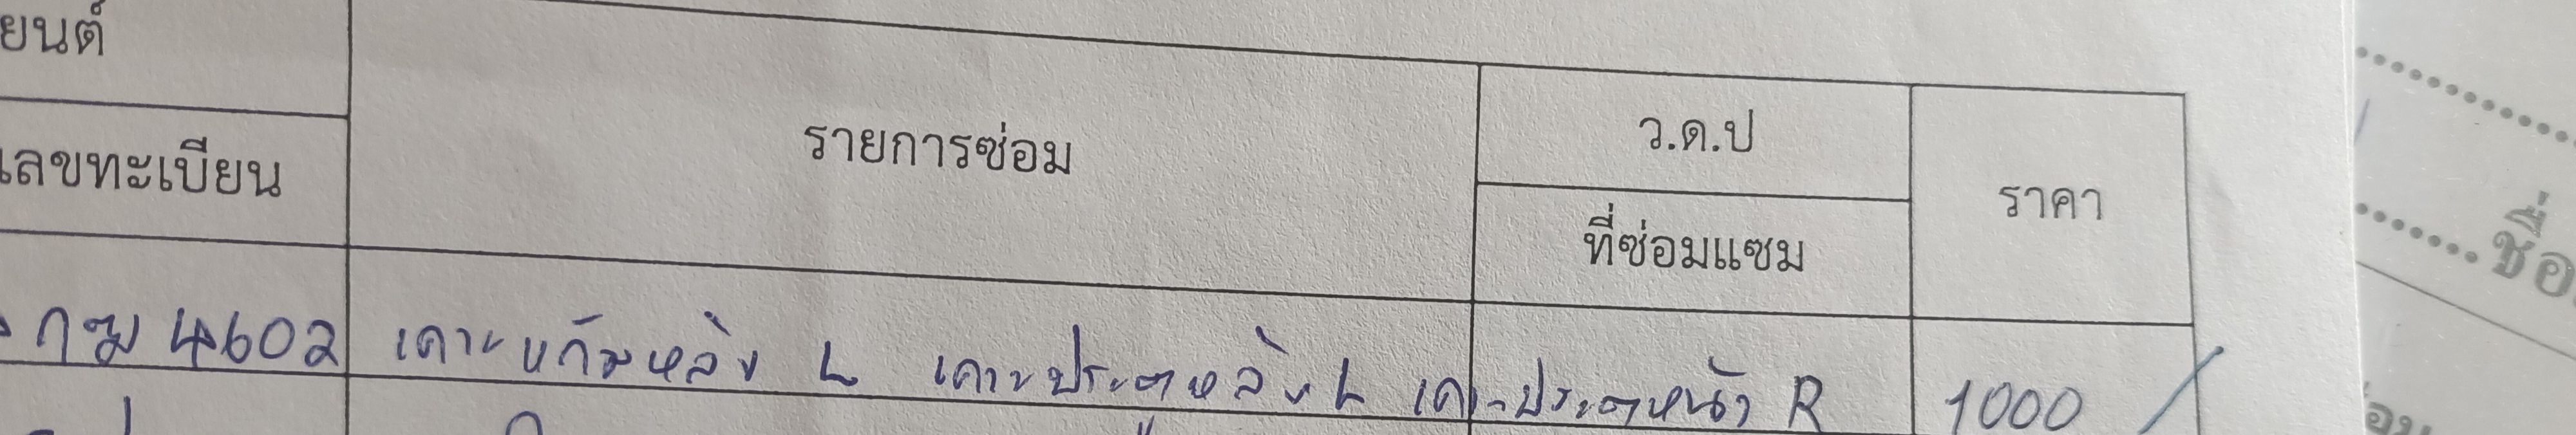 ยนต์
เลขทะเบียน
รายการซ่อม
ว.ด.ป
ที่ซ่อมแซม
ราคา
กฆ 4602 เคาะแก้มหลัง L เคาะประตูหลัง L เคาะประตูหน้า R 1000 /
ชื่อ